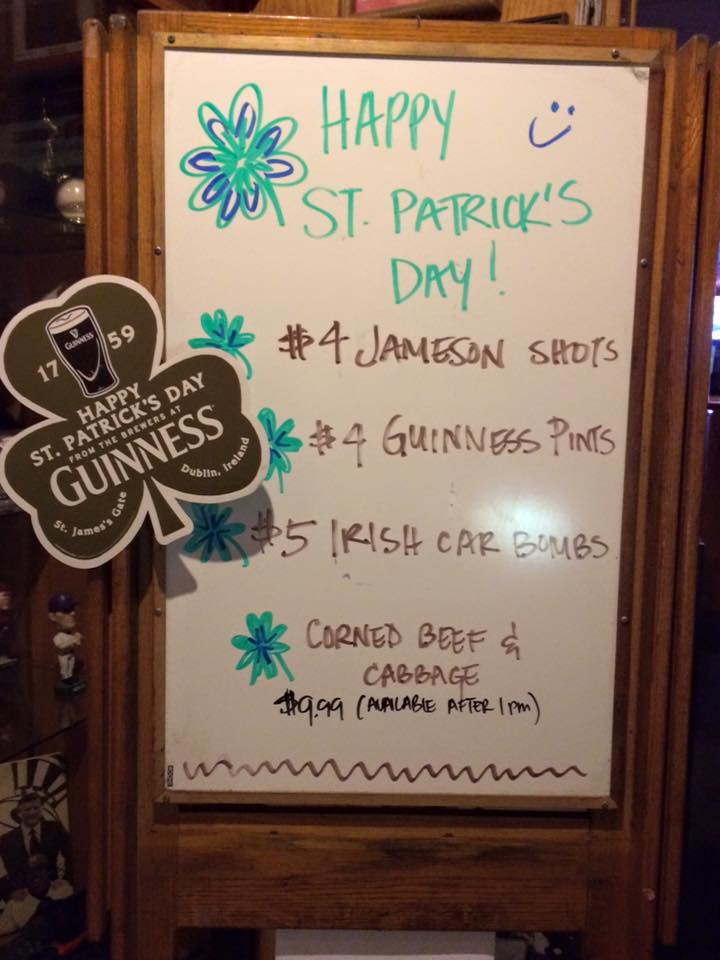 HAPPY
ST. PATRICK'S
DAY!
$4 JAMESON SHOTS
$4 GUINNESS PINTS
$5 IRISH CAR BOMBS
CORNED BEEF &
CABBAGE
$9.99 (AVAILABLE AFTER 1pm)
GUINNESS
17 59
HAPPY
ST. PATRICK'S DAY
FROM THE BREWERS AT
GUINNESS
St. James's Gate
Dublin, Ireland